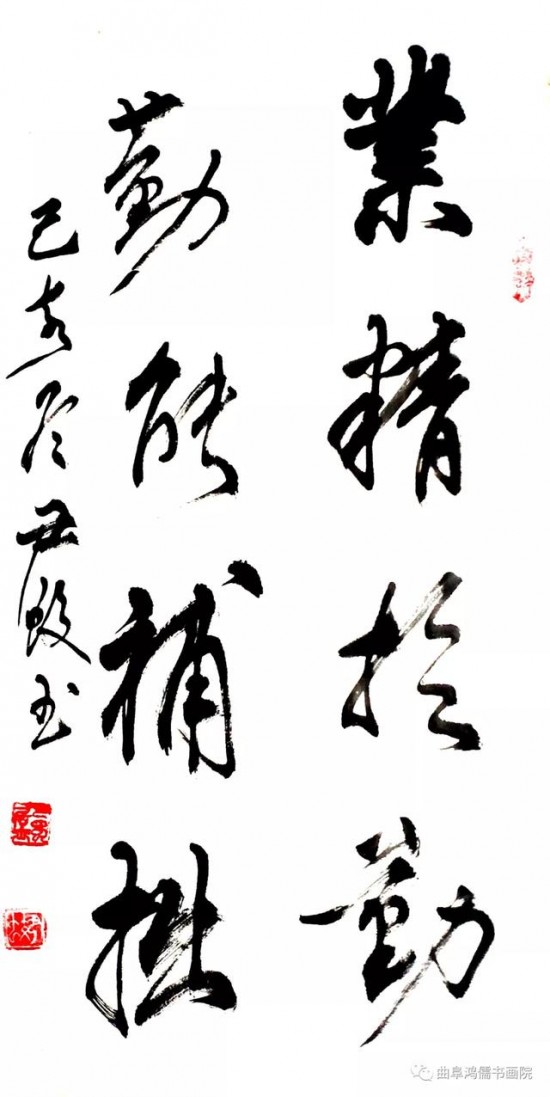 業精於勤
勤能補拙
己亥冬
書
曲阜鸿儒书画院